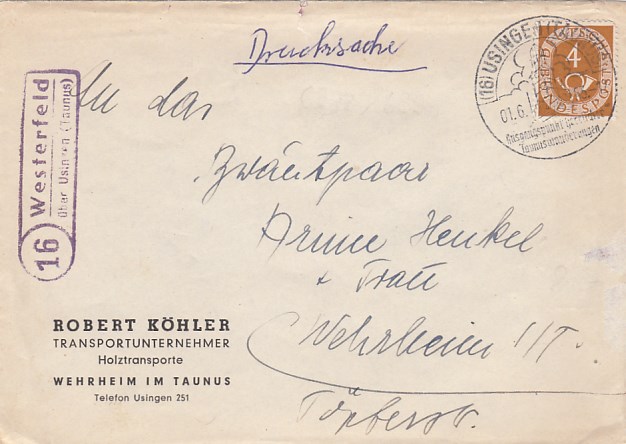 Drucksache
(16) USINGEN (TAUNUS)
01.6.
Ausgangspunkt
Taunuswanderungen
DEUTSCHE BUNDESPOST
4
16 Westerfeld
über Usingen (Taunus)
An das
Bräutpaar
Armin Henkel
+ Frau
Wehrheim i/T.
Töpferstr.
ROBERT KÖHLER
TRANSPORTUNTERNEHMER
Holztransporte
WEHRHEIM IM TAUNUS
Telefon Usingen 251